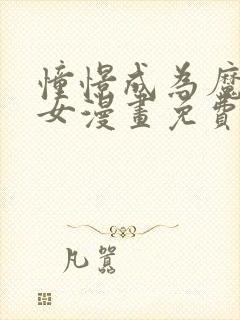 憧憬成為魔
女漫畫免費
凡囂